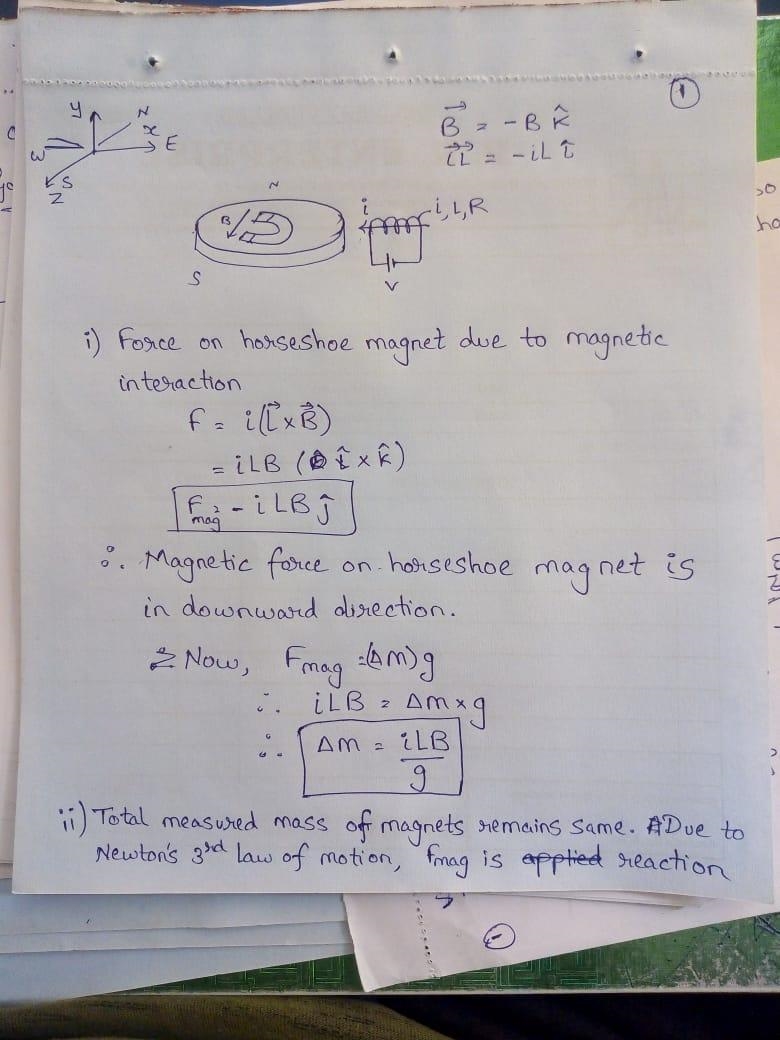 ①
y N
x
W E
S
Z
B⃗ = -B k̂
iL⃗ = -iL î
N
B
i i, L, R
S
V
i) Force on horseshoe magnet due to magnetic
interaction
F = i(L⃗ × B⃗)
= iLB (î × k̂)
Fmag = - iLB ĵ
∴ Magnetic force on horseshoe magnet is
in downward direction.
Now, Fmag = (Δm)g
∴ iLB = Δm × g
∴ Δm = iLB/g
ii) Total measured mass of magnets remains same. Due to
Newton's 3rd law of motion, Fmag is applied reaction